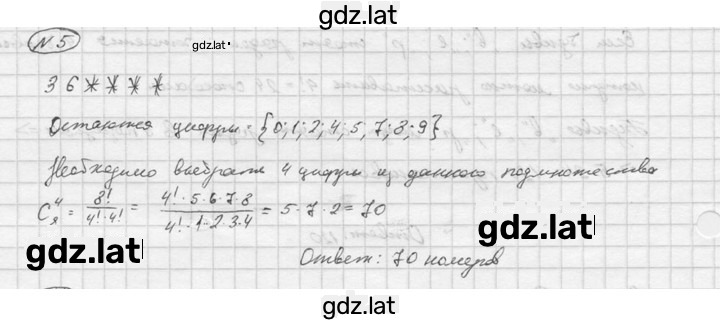 gdz.lat
N5
gdz.lat
36****
Остаются цифры: {0; 1; 2; 4; 5; 7; 8; 9}
Необходимо выбрать 4 цифры из данного подмножества
C₈⁴ = 8!/(4!·4!) = (4!·5·6·7·8)/(4!·1·2·3·4) = 5·7·2 = 70
gdz.lat
gdz.lat
Ответ: 70 номеров
gdz.lat